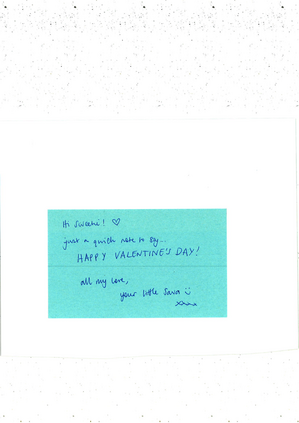 Hi Sweetie! ♡
just a quick note to say...
HAPPY VALENTINE'S DAY!
all my love,
your little Sara ☺
xxxx